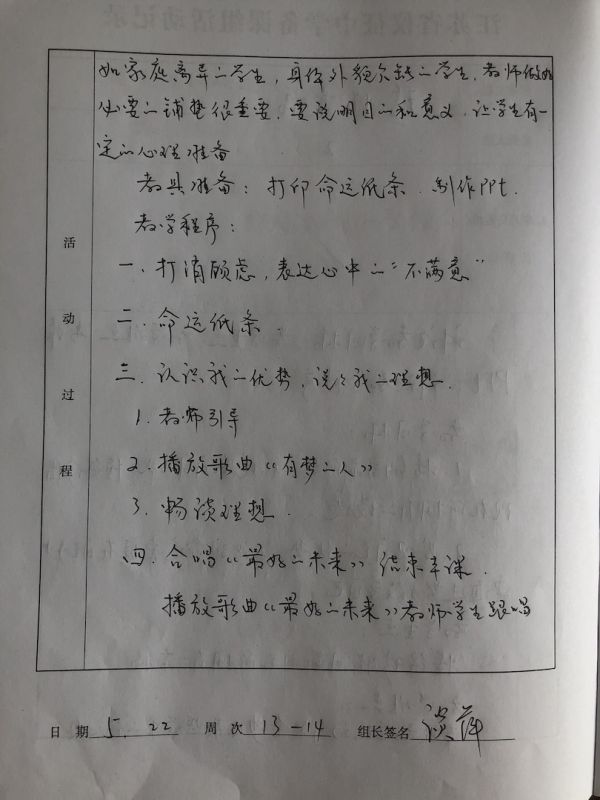 如家庭离异的学生，身体外貌欠缺的学生，教师做好
必要的铺垫很重要．要说明目的和意义，让学生有一
定的心理准备
教具准备：打印命运纸条．制作PPt.
教学程序：
一、打消顾虑，表达心中的“不满意”
二．命运纸条．
三．认识我的优势，说说我的理想．
1. 教师引导
2. 播放歌曲《有梦的人》
3. 畅谈理想．
四．合唱《最好的未来》结束本课．
播放歌曲《最好的未来》教师学生跟唱
活动过程
日期 5.22 周次 13-14 组长签名 谈萍